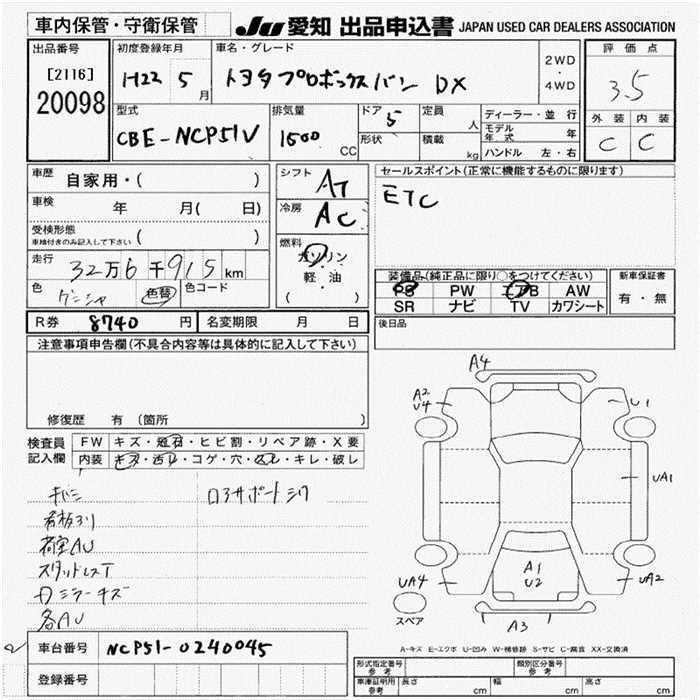 車内保管・守衛保管
JU 愛知 出品申込書 JAPAN USED CAR DEALERS ASSOCIATION
出品番号
[2116]
20098
初度登録年月
H22 5月
車名・グレード
トヨタ プロボックスバン DX
2WD
・
4WD
評価点
3.5
型式
CBE-NCP51V
排気量
1500 CC
ドア 5
形状
定員 人
積載 kg
ディーラー・並行
モデル年式 年
ハンドル 左・右
外装 内装
C C
車歴 自家用・( )
車検 年 月( 日)
受検形態
車検付きのみ記入して下さい ( )
走行 32万6千915km
色 ゲンシャ 色替 色コード
シフト AT
冷房 AC
燃料
ガソリン
軽・油
( ・ ・ )
セールスポイント(正常に機能するものに限ります)
ETC
装備品(純正品に限り○をつけてください)
PS PW エアB AW
SR ナビ TV カワシート
新車保証書
有・無
R券 8740 円 名変期限 月 日
後日品
注意事項申告欄(不具合内容等は具体的に記入して下さい)
修復歴 有 (箇所 )
検査員記入欄
FW キズ・飛石・ヒビ割・リペア跡・X要
内装 キズ・汚レ・コゲ・穴・スレ・キレ・破レ
キバミ
看板ヌリ
荷室AU
スタッドレスT
ミラーキズ
各AU
ロアサポートシワ
A4
A2
U4
U1
UA1
UA4
A1
U2
UA2
A3
スペア
A-キズ E-エクボ U-凹み W-補修跡 S-サビ C-腐食 XX-交換済
車台番号 NCP51-0240045
登録番号
形式指定番号 参考
類別区分番号 参考
車庫証明用 参考 長さ cm 幅 cm 高さ cm